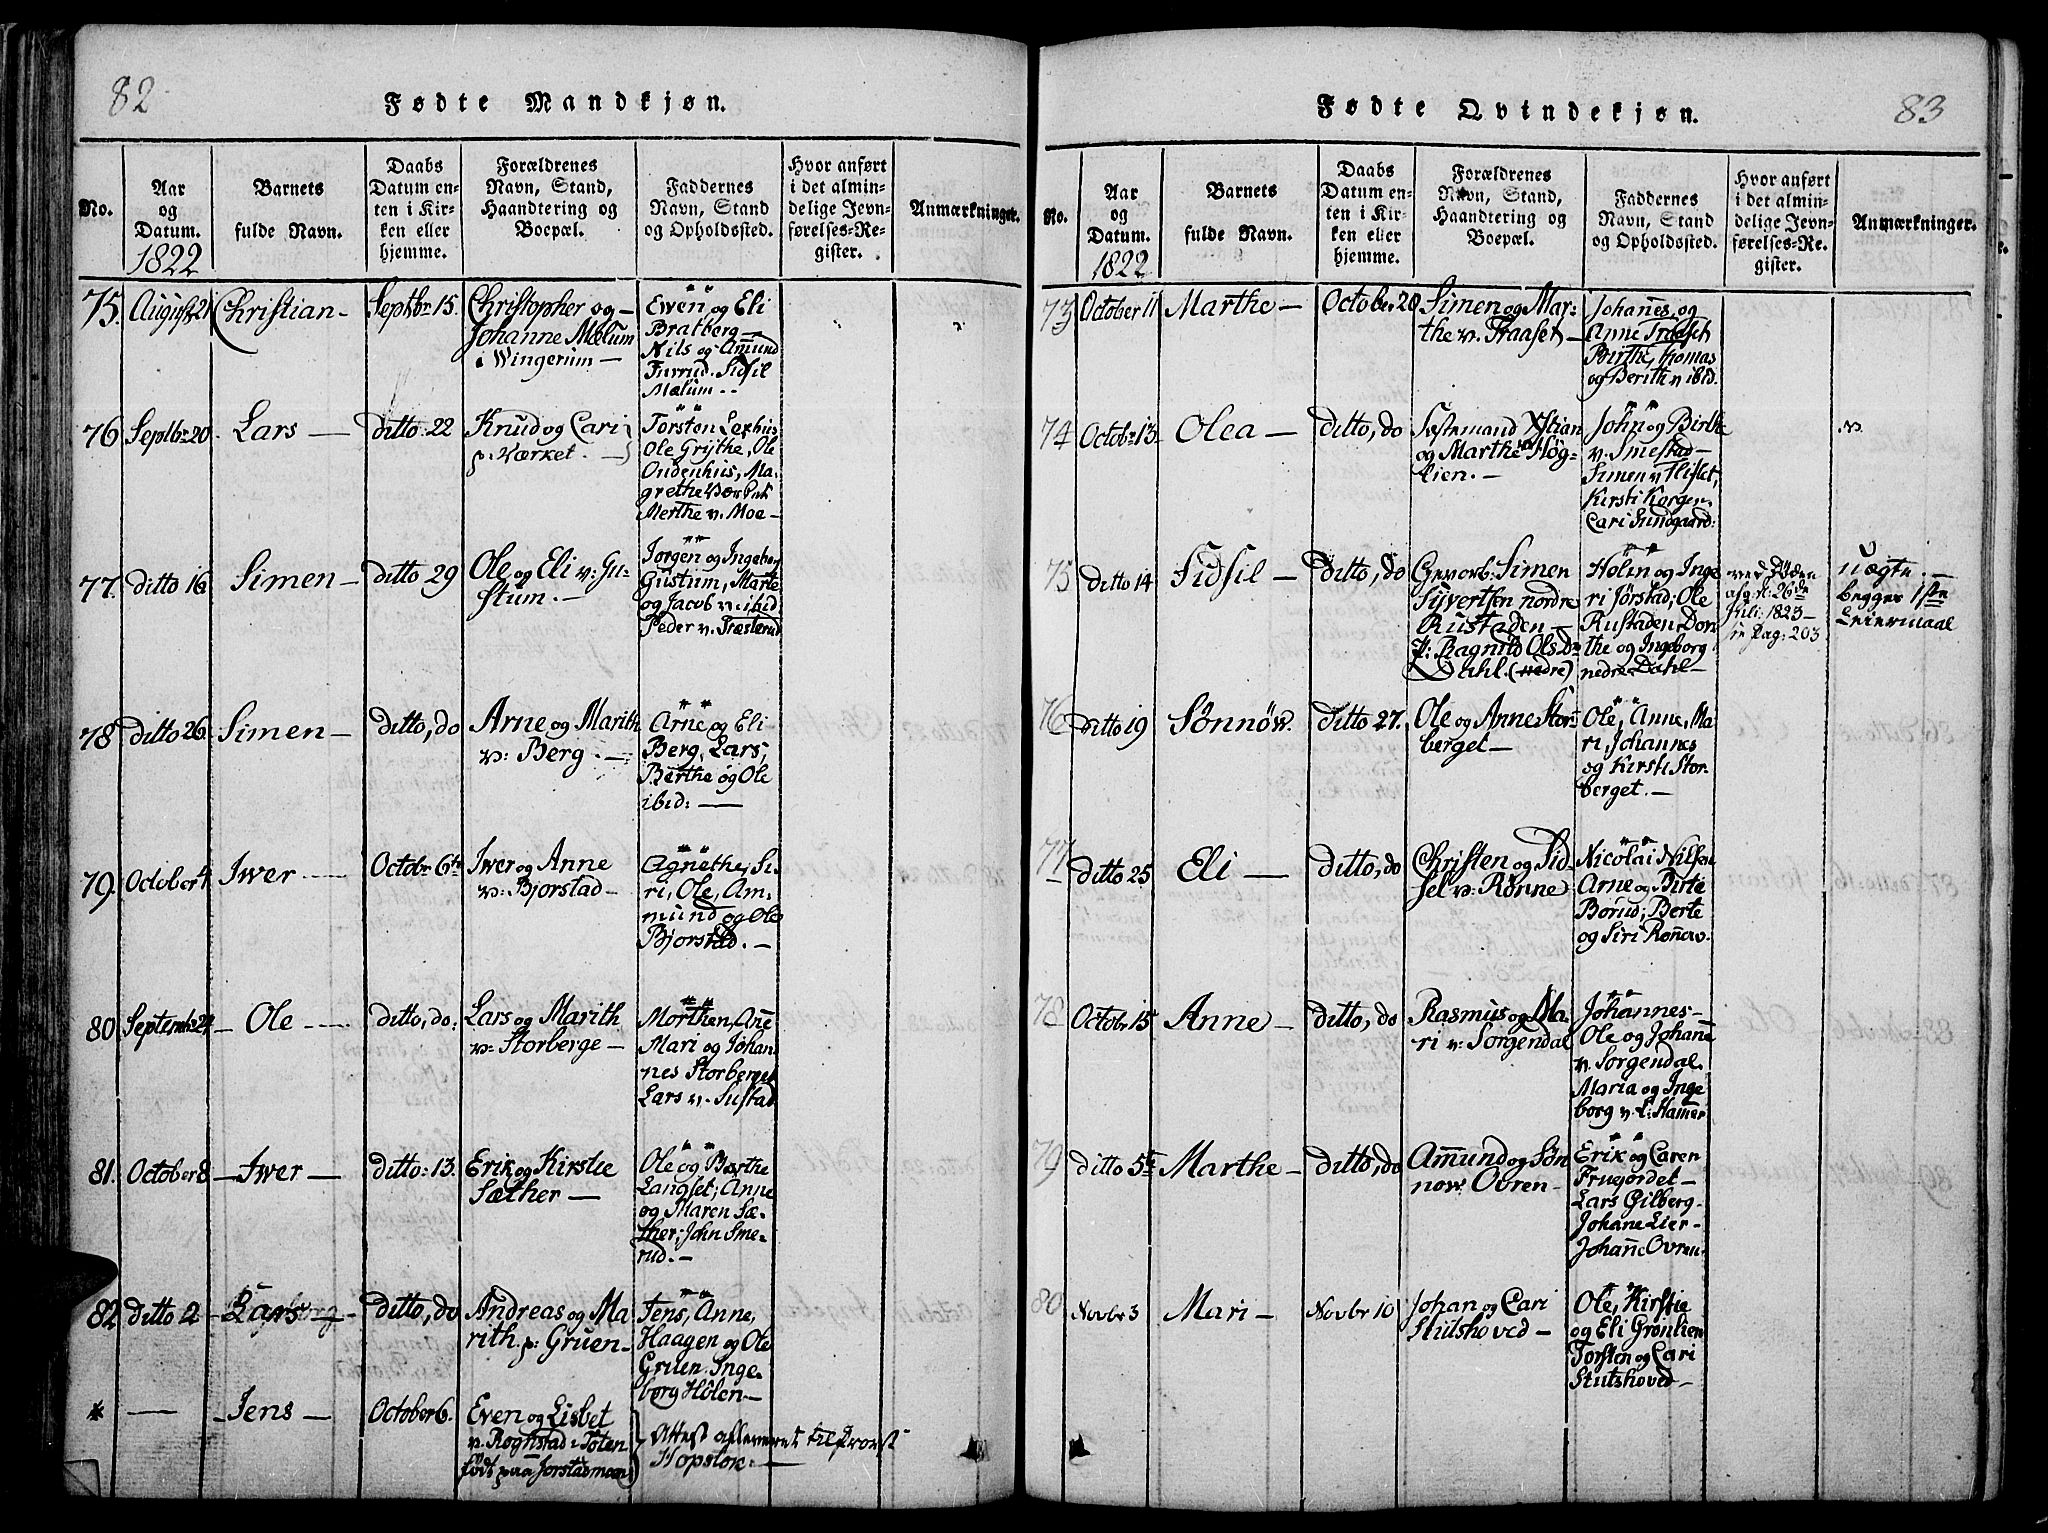 82
Fødte Mandkjøn.
No.
Aar
og
Datum.
1822
Barnets
fulde Navn.
Daabs
Datum en-
ten i Kir-
ken eller
hjemme.
Forældrenes
Navn, Stand,
Haandtering og
Boepæl.
Faddernes
Navn, Stand
og Opholdssted.
Hvor anført
i det almin-
delige Jevn-
førelses-Re-
gister.
Anmærkninger.
75.
August 21
Christian—
Septbr 15.
Christopher og—
Johanne Mælum
i Wingerum—
Ewen og Eli
Bratberg—
Nils og Amund
Furrud. Sidsil
Mælum..
76
Septbr 20.
Lars —
ditto 22
Knud og Cari
p: Værket.—
Torsten
Ole Grythe, Ole
Ondenhus, Ma-
grethe
Merthe v. Moe—
77.
ditto 16
Simen—
ditto 29
Ole og Eli v: Gu-
stum.—
Jorgen og Ingebor
Gustum, Marte
og Jacob v: ibid
Peder v. Præsterud
78
ditto 26.
Simen—
ditto, do
Arne og Marith
v: Berg.—
Arne og Eli
Berg, Lars,
Berthe og Ole
ibid: —
79.
October 4
Iwer —
Octobr 6te
Iwer og Anne
v: Bjorstad—
Agnethe, Si-
ri, Ole, Am-
mund og Ole
Bjorstad.—
80
Septembr 24
— Ole —
ditto, do:
Lars og Marith
v: Storberge—
Morthen, Ane
Mari og Johan-
nes Storberget
Lars v. Sustad
81.
October 8
— Iwer —
ditto: 13.
Erik og Kirstie
Sæther —
Ole og Barthe
Langset; Anne
og Maren Sæ-
ther; John Sme-
rud.—
82
ditto 2
Lars
ditto, do
Andreas og Ma-
rith p: Gruen—
Jens, Anne,
Haagen og Ole
Gruen. Inge-
borg Hólen—
*
—
— Jens —
October 6.
Even og Lisbet
v. Rognstad i Toten
født paa Jorstadmoen
Attest afleveret til Provst
Hopstok.—
83
Fødte Qvindekjøn.
No.
Aar
og
Datum.
1822
Barnets
fulde Navn.
Daabs
Datum en-
ten i Kir-
ken eller
hjemme.
Forældrenes
Navn, Stand,
Haandtering og
Boepæl.
Faddernes
Navn, Stand
og Opholdssted.
Hvor anført
i det almin-
delige Jevn-
førelses-Re-
gister.
Anmærkninger.
73
October 11
Marthe—
October 20
Simen og Mar-
the v. Traaset—
Johanes og
Anne Traaset
Birthe, Thomas
og Berith v ibid.
74
Octobr 13
Olea —
ditto, do
og Marthe Høg-
lien.—
John og Birthe
v. Smestad—
Simen v Flisset,
Kirsti Korgen
Cari Sundgaard:
75
ditto 14
Sidsil —
ditto, do
Gevorb: Simen
Sijvertsen nordre
Rustaden—
P: Ragnild Olsdr
Dahl. (nedre)
Holen og Inge
ri Jórstad; Ole
Rustaden, Dor
the og Ingeborg
nedre Dahl—
ved Døden
afg: d: 26de
Juli: 1823—
in Pag: 203
Uægte.—
begges 1ste
Leiermaal
76
ditto 19
Sønnøv.
ditto 27.
Ole og Anne Stor-
berget—
Ole, Anne, Ma-
ri, Johannes
og Kirsti Stor-
berget.—
77
ditto 25
Eli —
ditto, do
Christen og Sid-
sel v: Rønne—
Nicolai Nilsen
Arne og Birte
Borud; Berte
og Siri
78
Octobr 15
Anne—
ditto, do
Rasmus og Ma-
ri v: Sorgendal
Johannes—
Ole og Johane
v. Sorgendal.
Maria og Inge
borg v. l: Hamer
79
ditto 5te
Marthe—
ditto, do
Amund og Søn
now. Ovren—
Erik og Caren
Fruejordet—
Lars Gilberg—
Johane Lier—
Johane Ovren
80
Novbr 3
Mari —
Novbr 10
Johan og Cari
Stutshoved—
Ole, Kirstie
og Eli Gronlien
Torsten og Cari
Stutshoved—